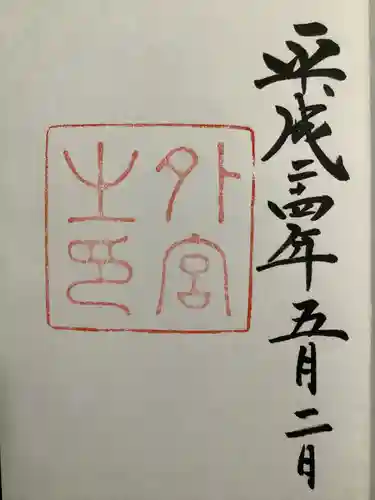 平成二十四年五月二日
外宮
之印